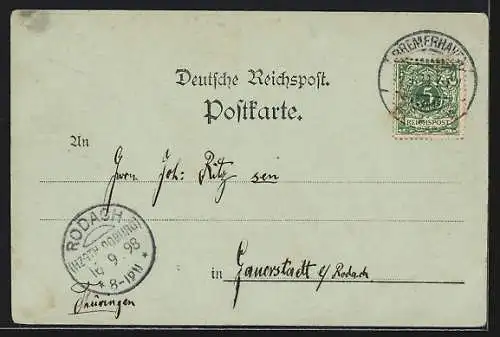 BREMERHAVEN
5
REICHSPOST
Deutsche Reichspost.
Postkarte.
An
Herrn Joh: Ritz sen
RODACH
(HZGTH. COBURG)
16 9 98
* 8-9N *
in Gauerstadt b/Rodach.
Thüringen